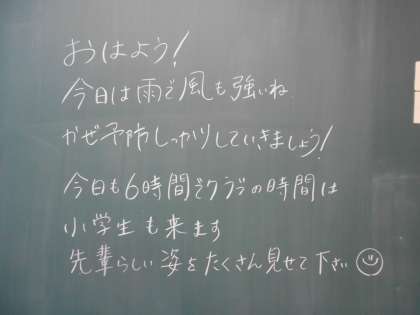 おはよう!
今日は雨で風も強いね
かぜ予防しっかりしていきましょう!
今日も6時間でクラブの時間は
小学生も来ます
先輩らしい姿をたくさん見せて下さい